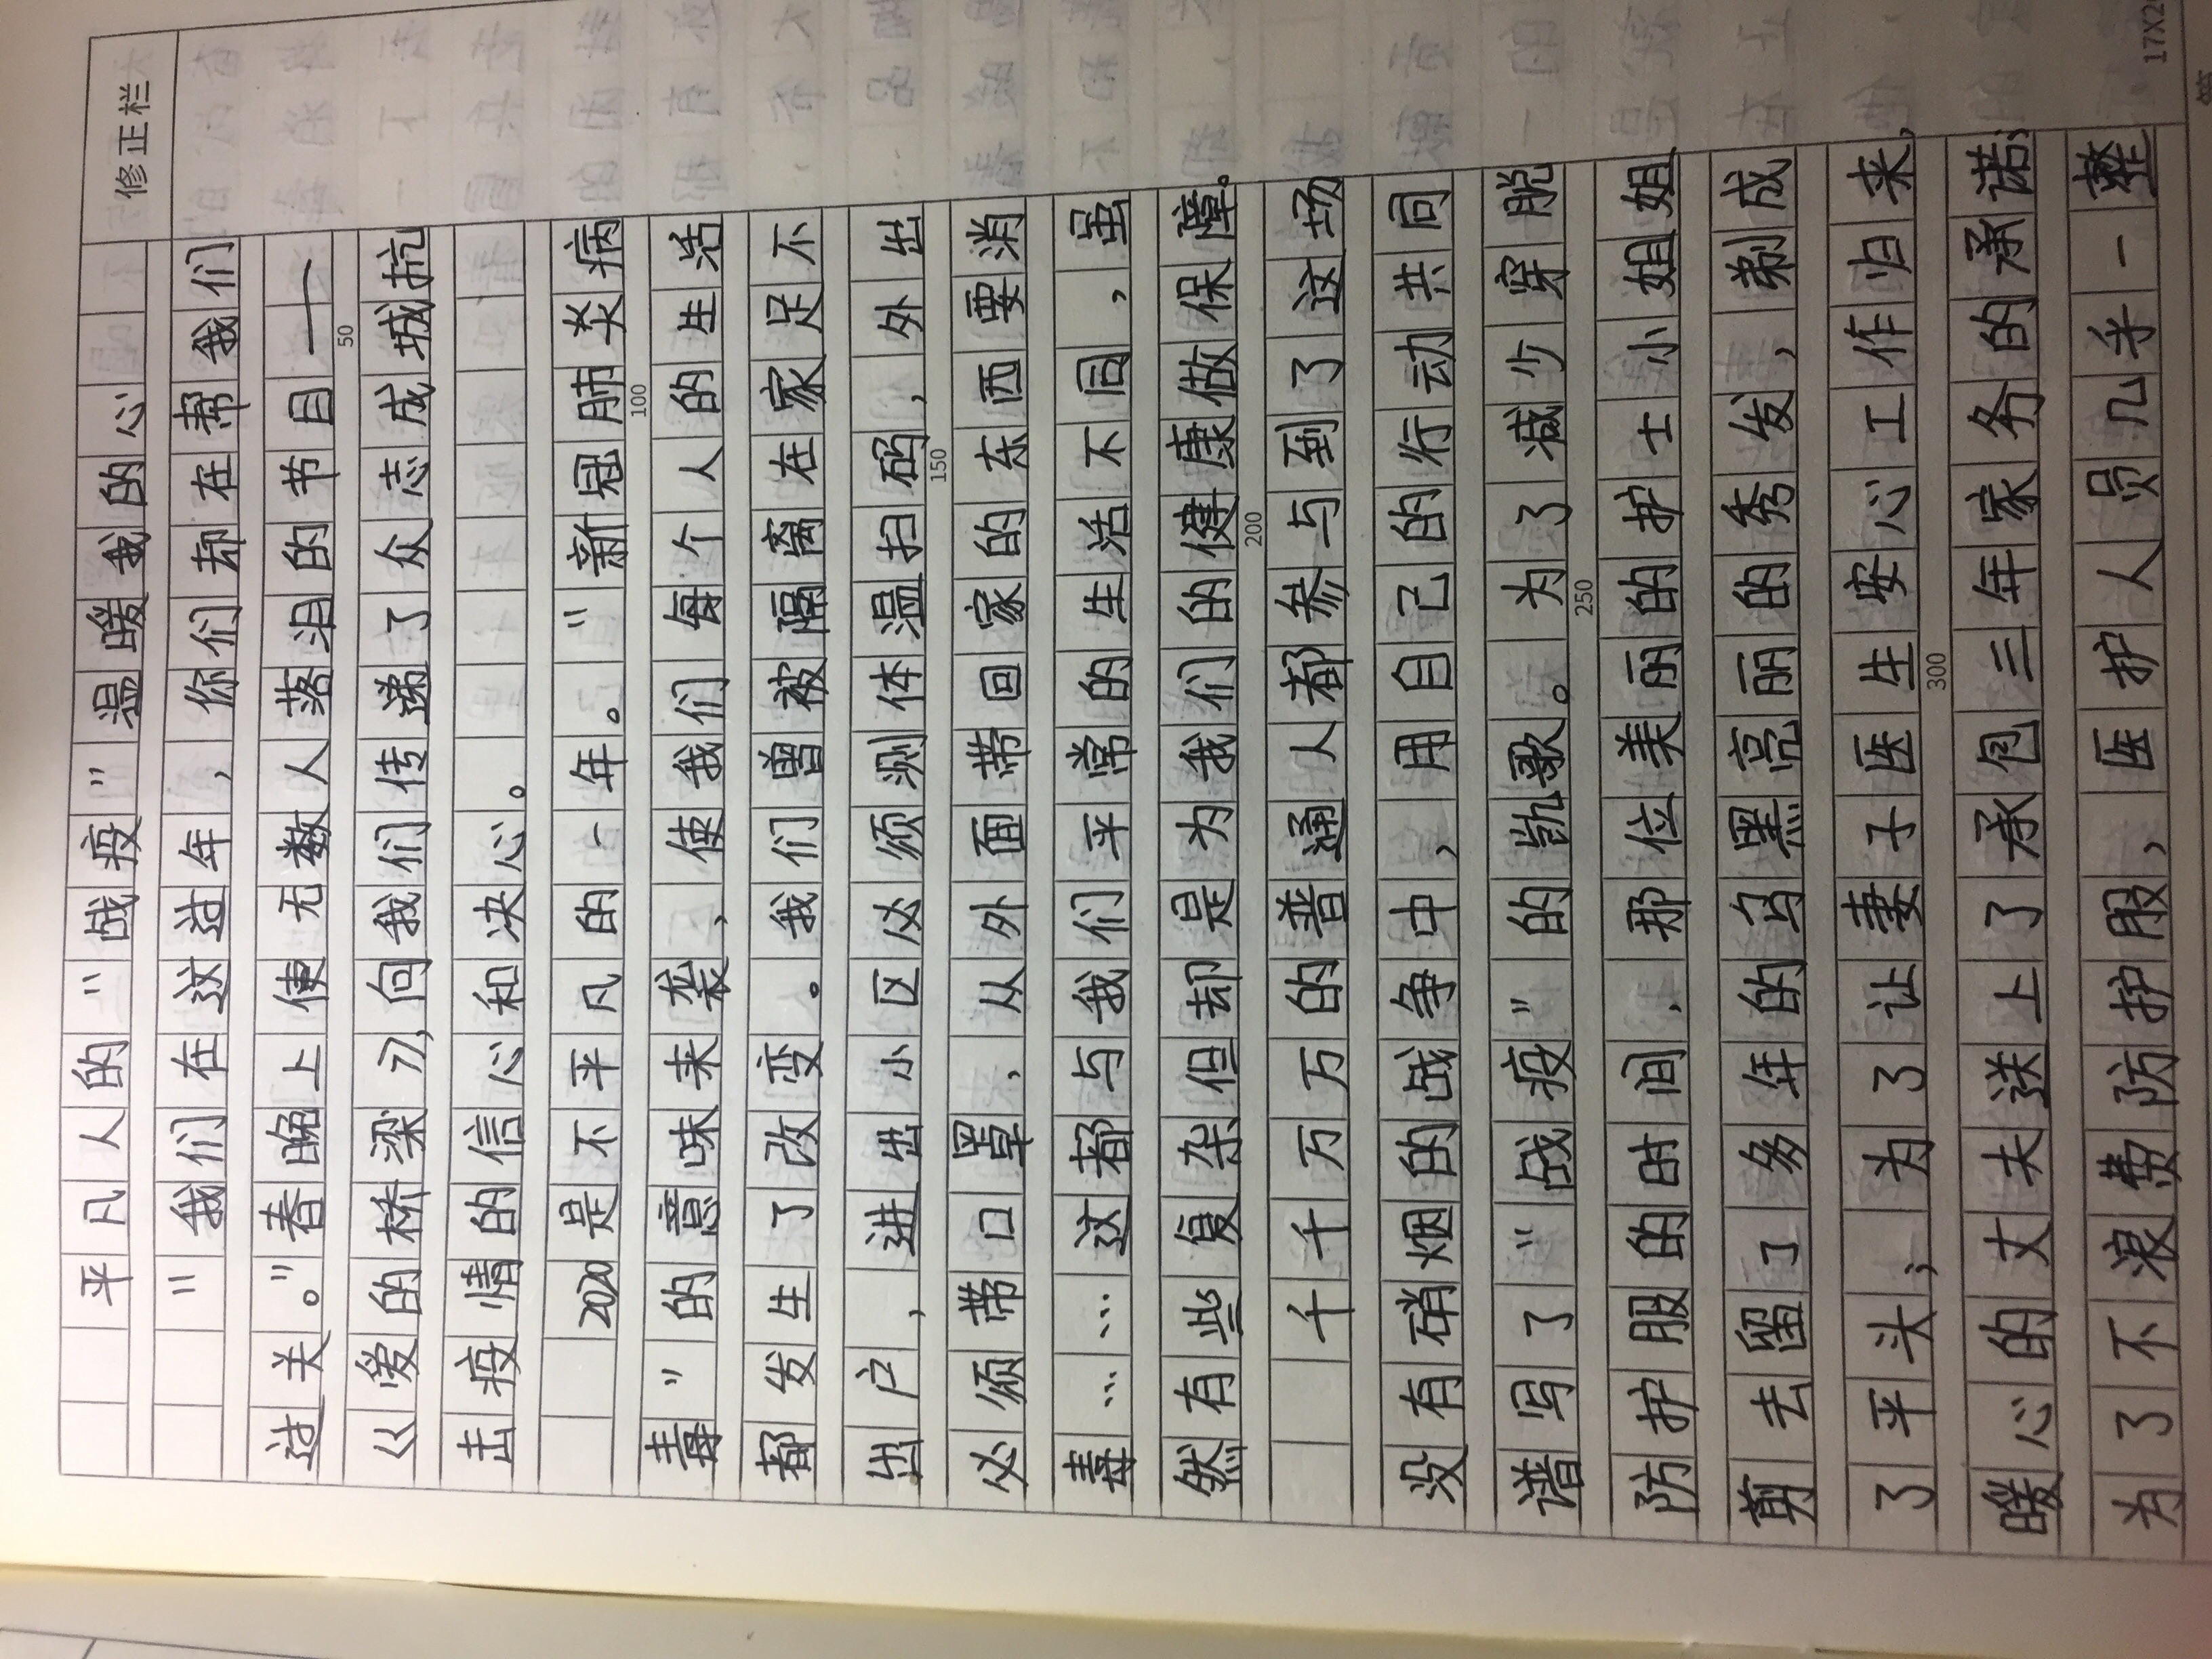 平凡人的“战疫”温暖我的心
修正栏
“我们在这过年，你们却在帮我们
过关。”春晚上使无数人落泪的节目——
50
《爱的桥梁》,向我们传递了众志成城抗
击疫情的信心和决心。
2020是不平凡的一年。“新冠肺炎病
100
毒”的意味来袭，使我们每个人的生活
都发生了改变。我们曾被隔离在家足不
出户，进出小区必须测体温扫码，外出
150
必须带口罩，从外面带回家的东西要消
毒……这都与我们平常的生活不同，虽
然有些复杂但却是为我们的健康做保障。
200
千千万万的普通人都参与到了这场
没有硝烟的战争中，用自己的行动共同
谱写了“战疫”的凯歌。为了减少穿脱
250
防护服的时间，那位美丽的护士小姐姐
剪去留了多年的乌黑亮丽的秀发，剃成
了平头；为了让妻子医生安心工作归来，
300
暖心的丈夫送上了承包三年家务的承诺；
为了不浪费防护服，医护人员几乎一整
17X20